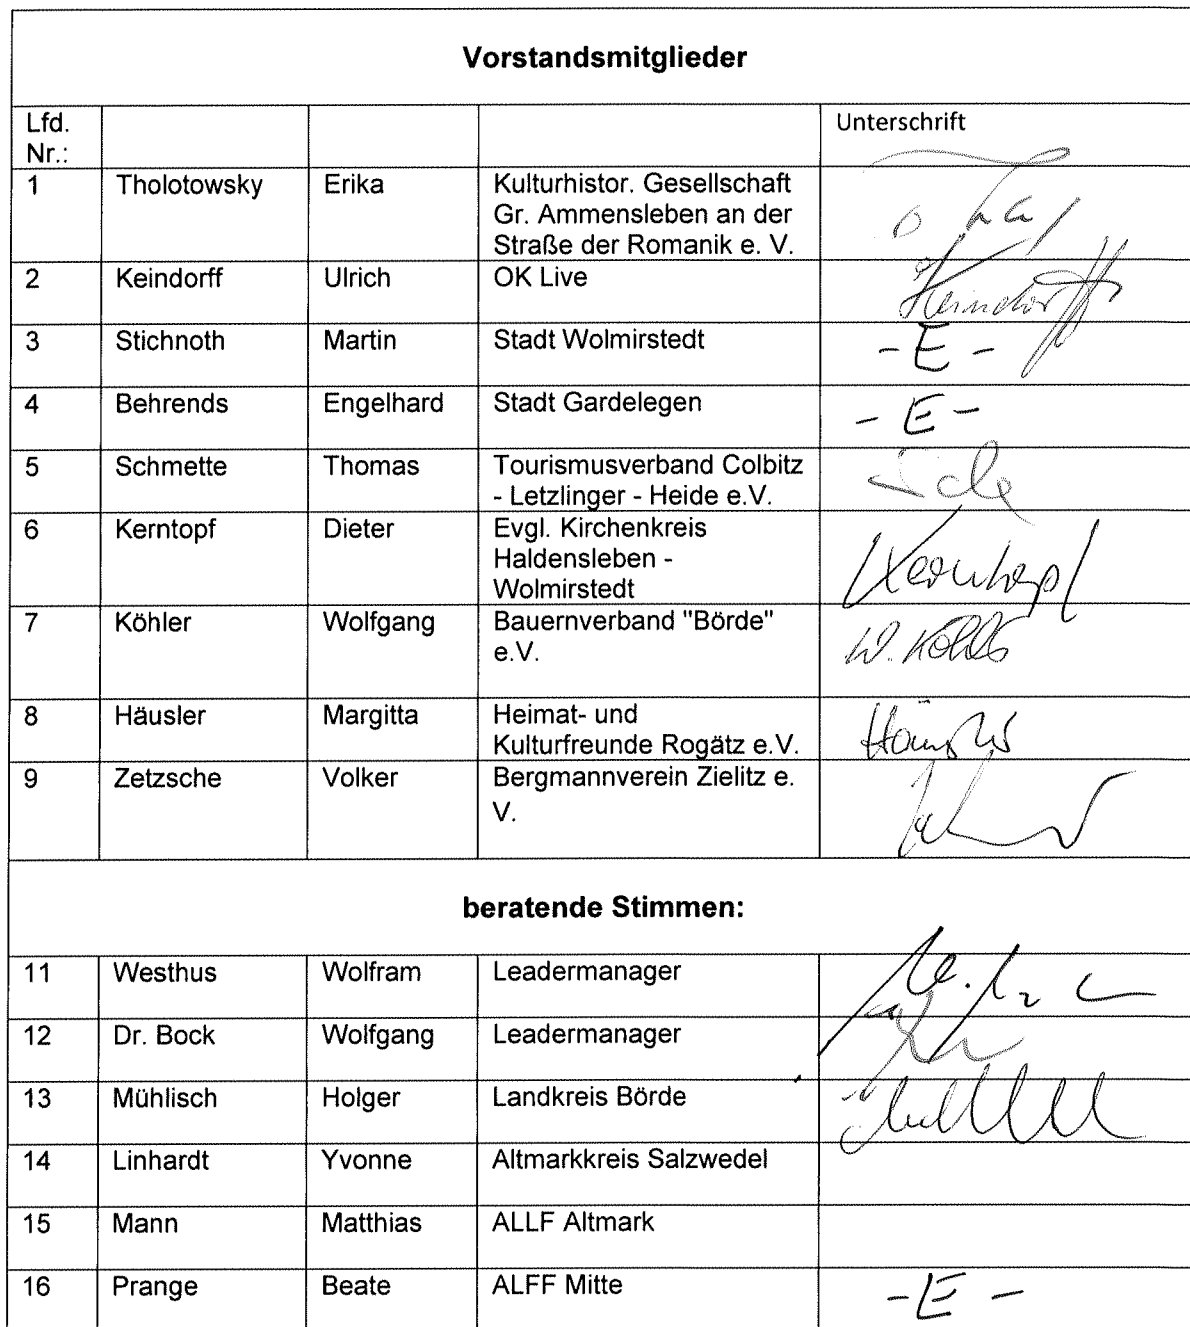 Vorstandsmitglieder
Lfd. Unterschrift
Nr.:
1 Tholotowsky Erika Kulturhistor. Gesellschaft
Gr. Ammensleben an der
Straße der Romanik e. V.
2 Keindorff Ulrich OK Live Keindorff
3 Stichnoth Martin Stadt Wolmirstedt - E -
4 Behrends Engelhard Stadt Gardelegen - E -
5 Schmette Thomas Tourismusverband Colbitz
- Letzlinger - Heide e.V.
6 Kerntopf Dieter Evgl. Kirchenkreis Kerntopf
Haldensleben -
Wolmirstedt
7 Köhler Wolfgang Bauernverband "Börde" W. Köhler
e.V.
8 Häusler Margitta Heimat- und Häusler
Kulturfreunde Rogätz e.V.
9 Zetzsche Volker Bergmannverein Zielitz e.
V.
beratende Stimmen:
11 Westhus Wolfram Leadermanager
12 Dr. Bock Wolfgang Leadermanager
13 Mühlisch Holger Landkreis Börde
14 Linhardt Yvonne Altmarkkreis Salzwedel
15 Mann Matthias ALLF Altmark
16 Prange Beate ALFF Mitte - E -